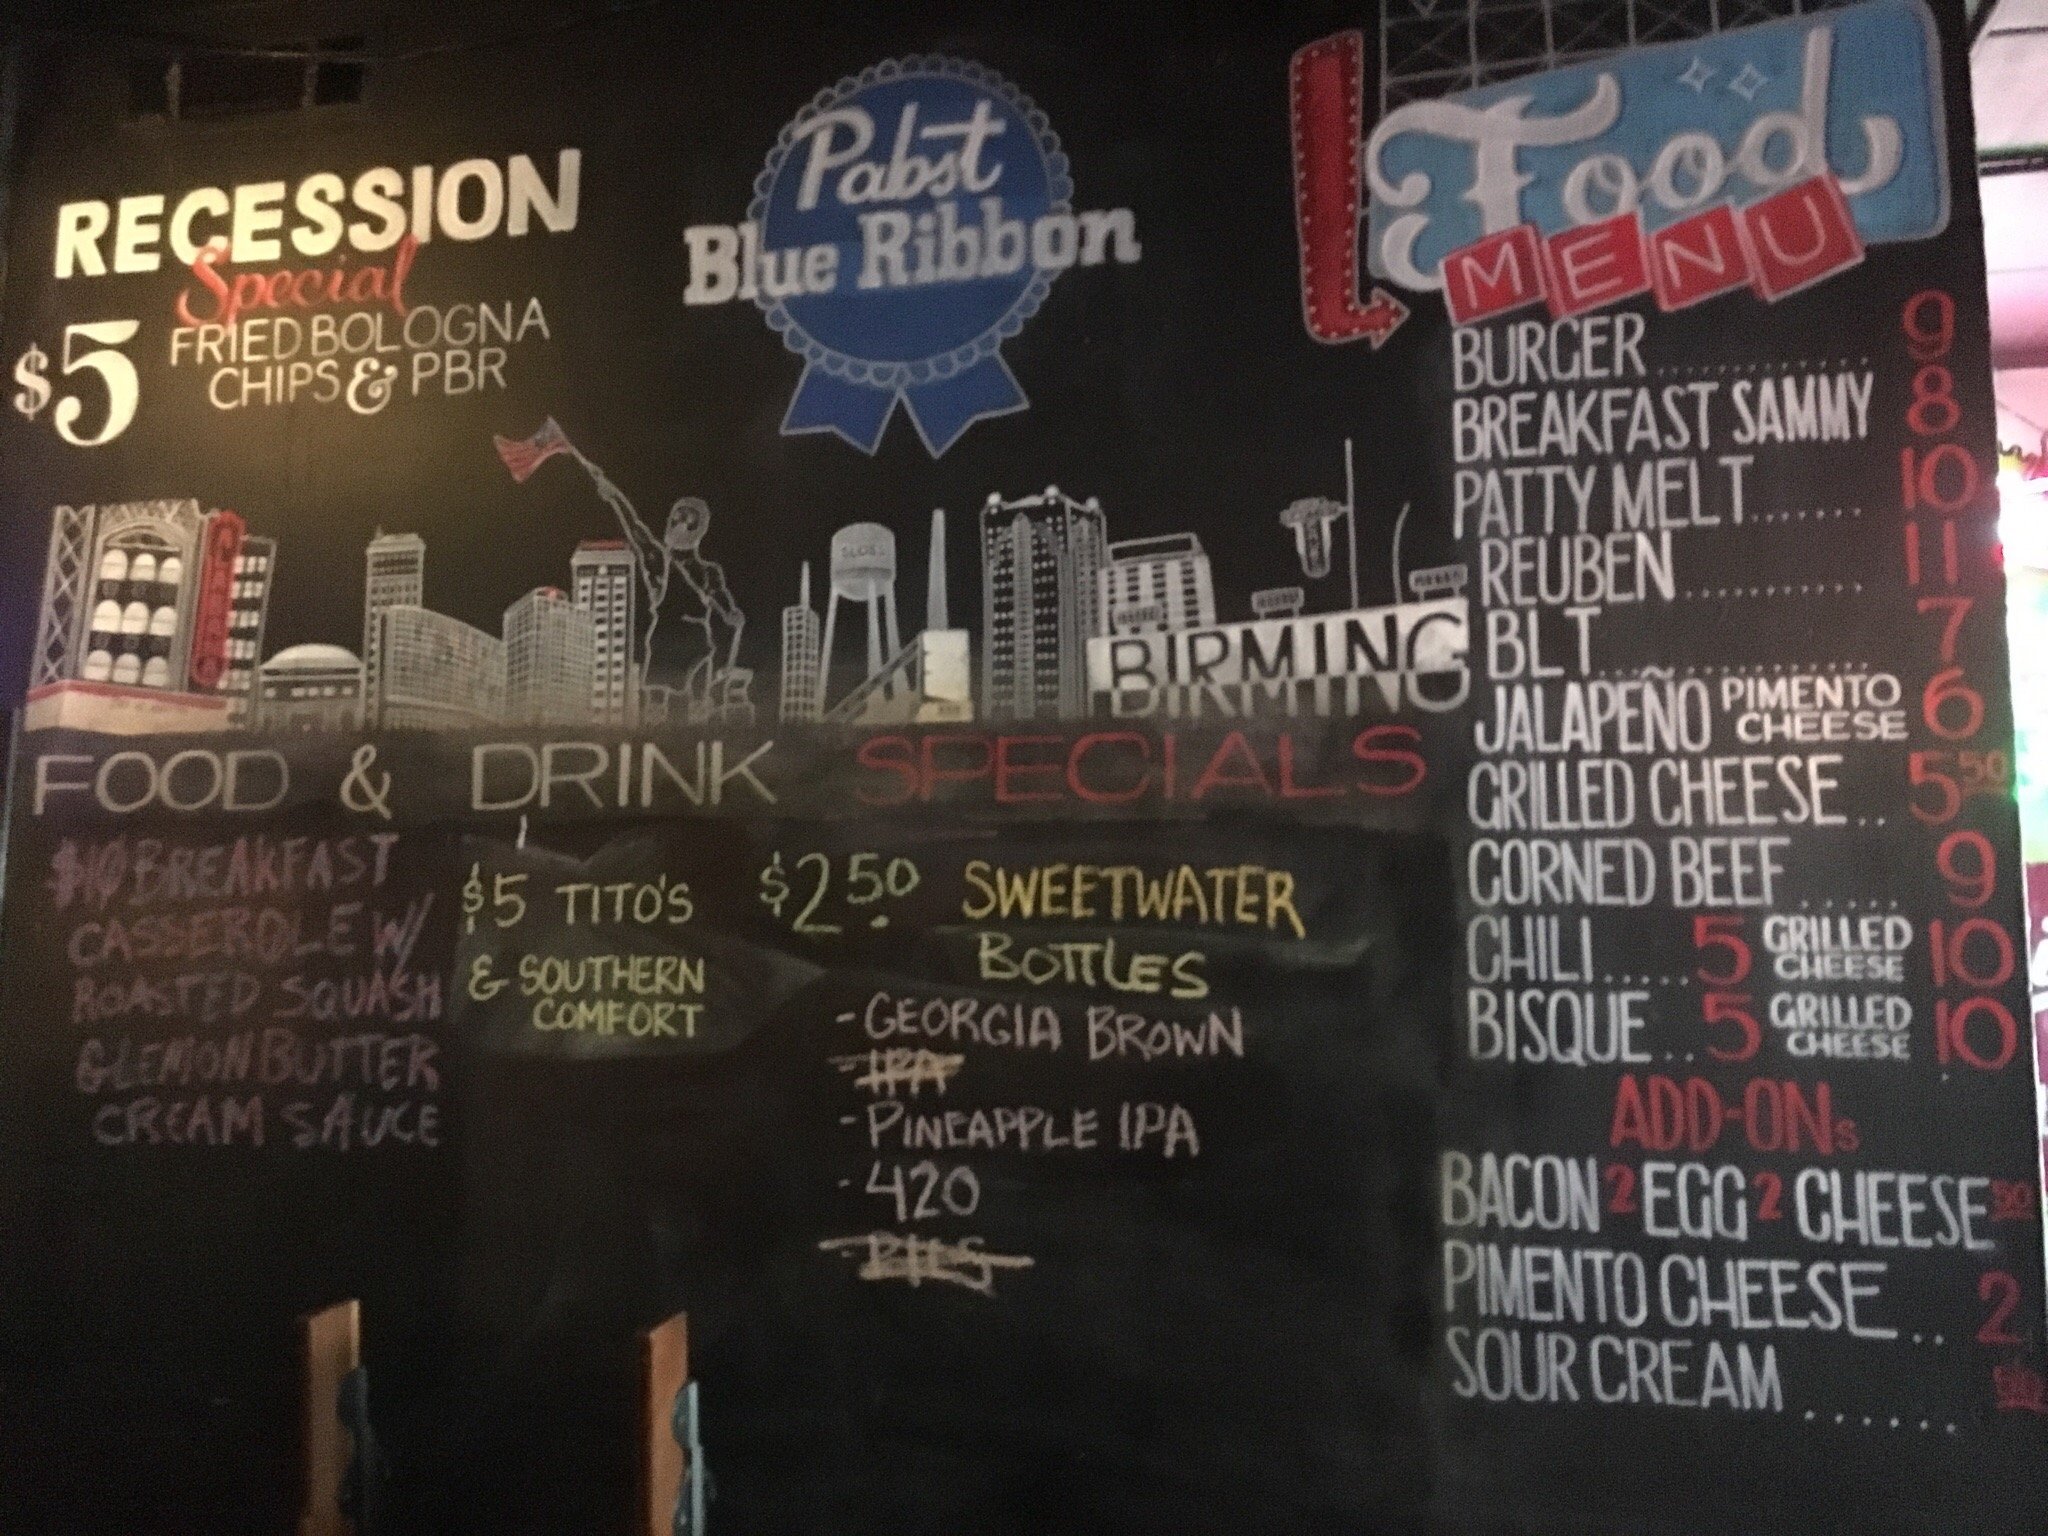 RECESSION
Special
$5 FRIED BOLOGNA
CHIPS & PBR
Pabst
Blue Ribbon
SLOSS
BIRMING
FOOD & DRINK SPECIALS
$10 BREAKFAST
CASSEROLE W/
ROASTED SQUASH
& LEMON BUTTER
CREAM SAUCE
$5 TITO'S
& SOUTHERN
COMFORT
$2.50 SWEETWATER
BOTTLES
- GEORGIA BROWN
- IPA
- PINEAPPLE IPA
- 420
Food
MENU
BURGER............. 9
BREAKFAST SAMMY 8
PATTY MELT....... 10
REUBEN........... 11
BLT................ 7
JALAPEÑO PIMENTO CHEESE 6
GRILLED CHEESE.. 5.50
CORNED BEEF..... 9
CHILI.....5 GRILLED CHEESE 10
BISQUE..5 GRILLED CHEESE 10
ADD-ONs
BACON 2 EGG 2 CHEESE 50
PIMENTO CHEESE.. 2
SOUR CREAM ......